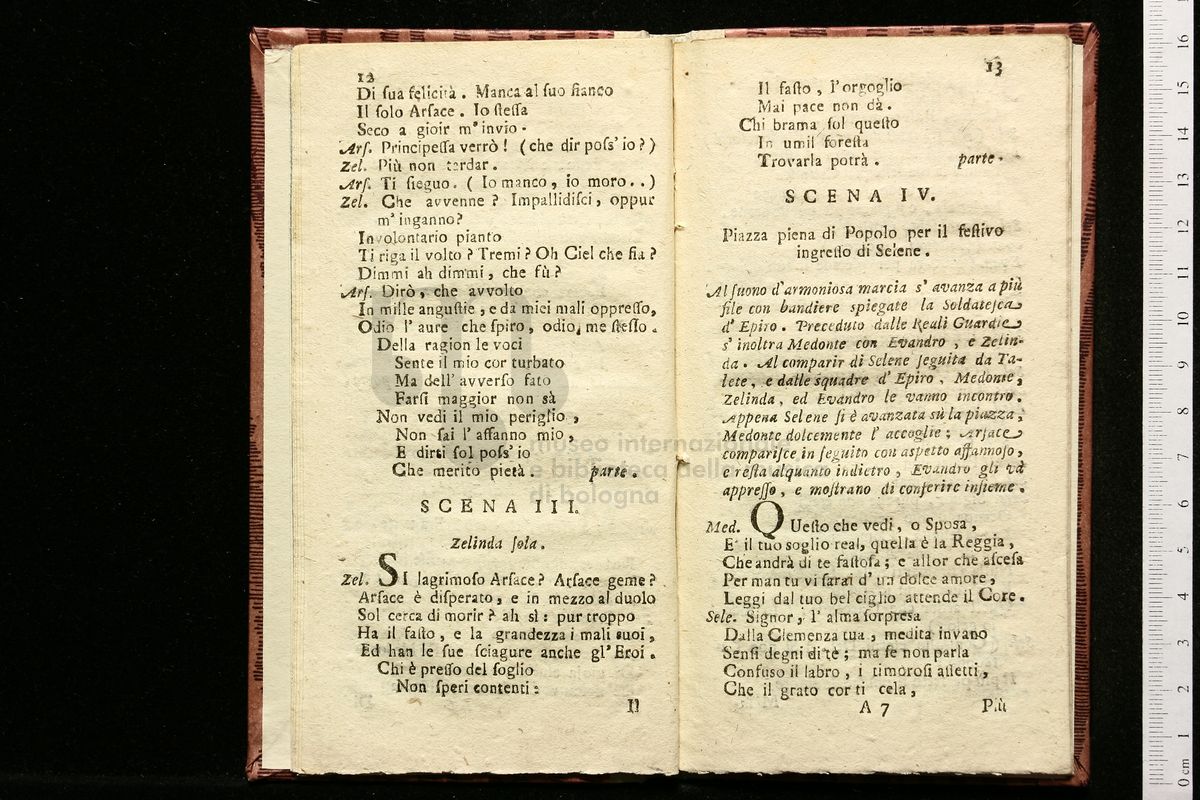 12
Di sua felicità. Manca al suo fianco
Il solo Arsace. Io stessa
Seco a gioir m'invio.
Ars. Principessa verrò! (che dir poss'io?)
Zel. Più non tardar.
Ars. Ti sieguo. (Io manco, io moro..)
Zel. Che avvenne? Impallidisci, oppur
m'inganno?
Involontario pianto
Ti riga il volto? Tremi? Oh Ciel che fia?
Dimmi ah dimmi, che fù?
Ars. Dirò, che avvolto
In mille angustie, e da miei mali oppresso,
Odio l'aure che spiro, odio me stesso.
Della ragion le voci
Sente il mio cor turbato
Ma dell'avverso fato
Farsi maggior non sà
Non vedi il mio periglio,
Non sai l'affanno mio,
E dirti sol poss'io
Che merito pietà. parte.
SCENA III.
Zelinda sola.
Zel. SI lagrimoso Arsace? Arsace geme?
Arsace è disperato, e in mezzo al duolo
Sol cerca di morir? ah sì: pur troppo
Ha il fasto, e la grandezza i mali suoi,
Ed han le sue sciagure anche gl'Eroi.
Chi è presso del soglio
Non speri contenti:
Il
13
Il fasto, l'orgoglio
Mai pace non dà.
Chi brama sol questo
In umil foresta
Trovarla potrà. parte.
SCENA IV.
Piazza piena di Popolo per il festivo
ingresso di Selene.
Al suono d'armoniosa marcia s'avanza a più
file con bandiere spiegate la Soldatesca
d'Epiro. Preceduto dalle Reali Guardie
s'inoltra Medonte con Evandro, e Zelin-
da. Al comparir di Selene seguita da Ta-
lete, e dalle squadre d'Epiro, Medonte,
Zelinda, ed Evandro le vanno incontro.
Appena Selene si è avanzata sù la piazza,
Medonte dolcemente l'accoglie; Arsace
comparisce in seguito con aspetto affannoso,
e resta alquanto indietro, Evandro gli và
appresso, e mostrano di conferire insieme.
Med. QUesto che vedi, o Sposa,
E' il tuo soglio real, quella è la Reggia,
Che andrà di te fastosa; e allor che ascesa
Per man tu vi sarai d'un dolce amore,
Leggi dal tuo bel ciglio attende il Core.
Sele. Signor, l'alma sorpresa
Dalla Clemenza tua, medita invano
Sensi degni di tè; ma se non parla
Confuso il labro, i timorosi affetti,
Che il grato cor ti cela,
A 7 Più
museo internazionale
e biblioteca della
di bologna